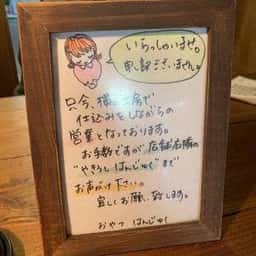 いらっしゃいませ。
申し訳ございません。
只今、横の房で
仕込みをしながらの
営業となっております。
お手数ですが 店舗右隣の
"やきうしはんじゅく"まで
お声がけ下さい。
宜しくお願い致します。
おやつ はんじゅく